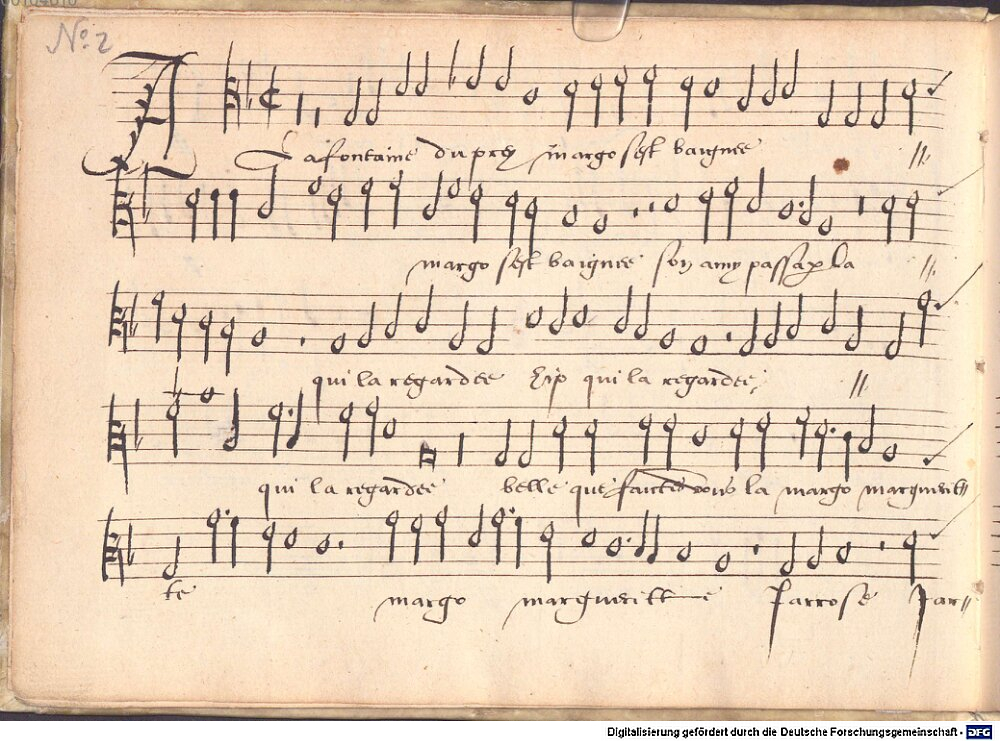 No: 2
A la fontaine du prez margo sest baignee //
margo sest baignee son amy passa p la //
qui la regardee hip qui la regardee //
qui la regardee belle que faictes vous la margo margueritt
te margo margueritte Jarrose Jar//
Digitalisierung gefördert durch die Deutsche Forschungsgemeinschaft - DFG